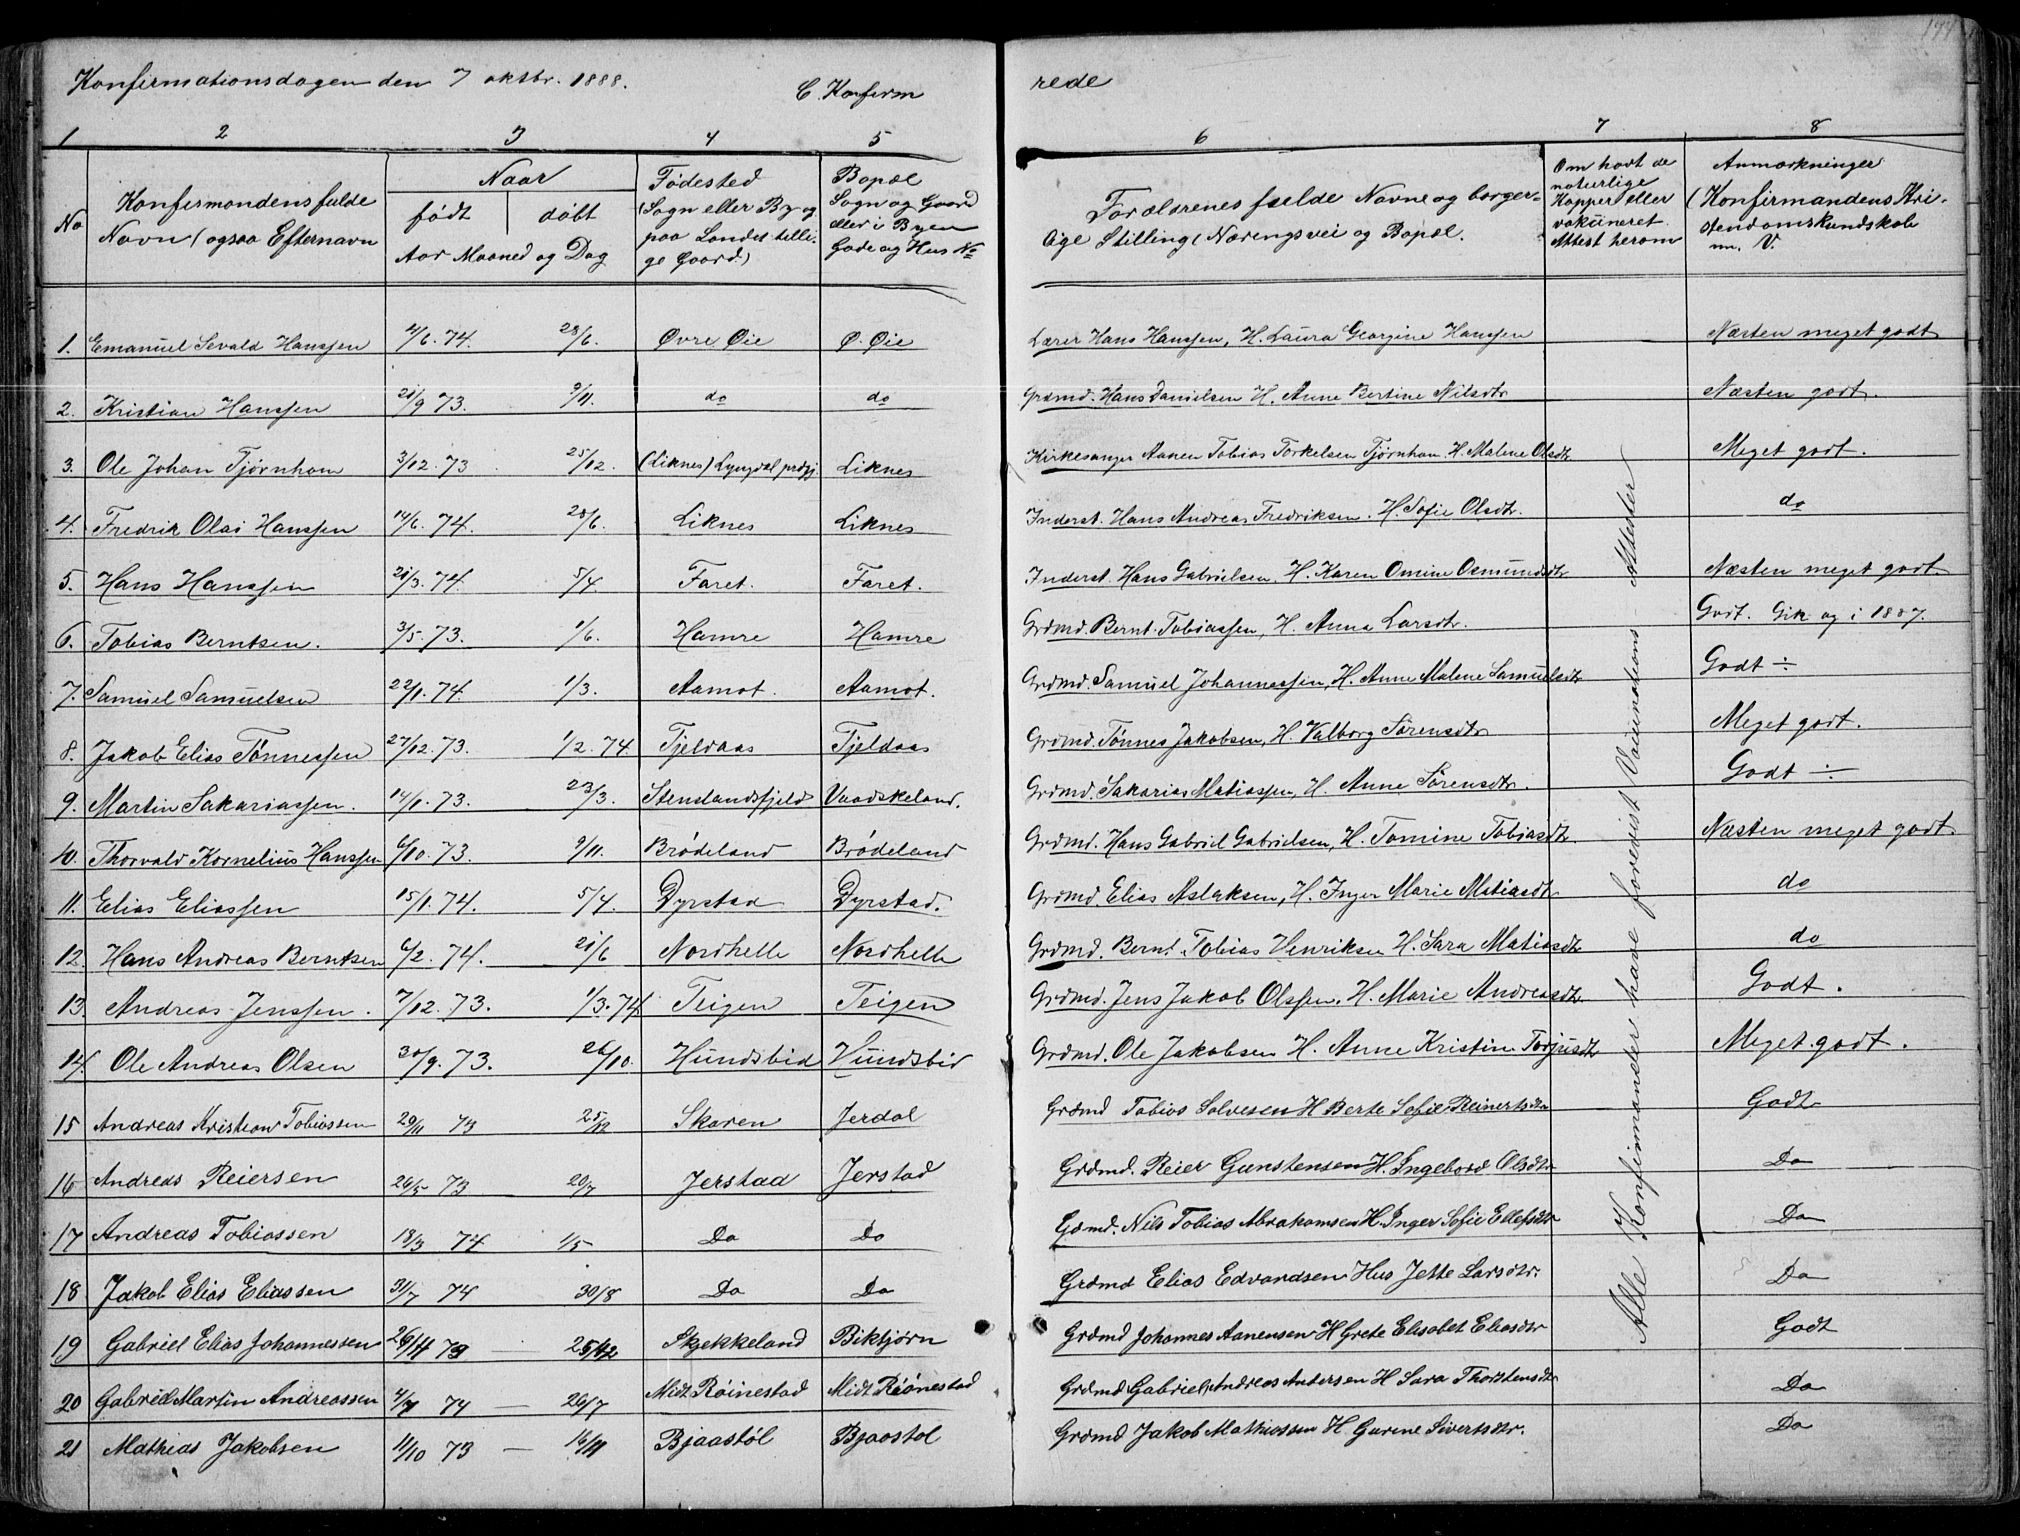 Konfirmationsdagen den 7 oktbr. 1888. C. Konfirmerede
1 2 3 4 5 6 7 8
No
Konfirmandens fulde Navn (ogsaa Efternavn
Naar
født døbt
Aar Maaned og Dag
Fødested (Sogn eller By og paa Landet tillige Gaard.)
Bopæl Sogn og Gaard eller i Byen Gade og Hus No
Forældrenes fulde Navne og borgerlige Stilling (Næringsvei og Bopæl.
Om havt de naturlige Kopper eller vakcineret Attest herom
Anmærkninger (Konfirmandens Kristendomskundskab m. V.
1. Emanuel Sevald Hanssen 4/6. 74. 28/6. Øvre Øie Ø. Øie Lærer Hans Hanssen, H. Laura Georgine Hanssen Næsten meget godt
2. Kristian Hanssen 21/9 73. 9/11. do do Grdmd. Hans Danielsen H. Anne Bertine Nilsdtr Næsten godt.
3. Ole Johan Tjørnhom 3/12. 73 25/12. (Liknes) Lyngdal prdgj Liknes Kirkesanger Aanen Tobias Torkelsen Tjørnhom. H. Malene Olsdtr Meget godt.
4. Fredrik Olai Hanssen 14/6. 74. 28/6. Liknes Liknes Inderst. Hans Andreas Fredriksen. H. Sofie Olsdtr. do
5. Hans Hanssen 21/3. 74. 5/4. Faret. Faret. Inderst. Hans Gabrielsen, H. Karen Omine Osmundsdtr Næsten meget godt.
6. Tobias Berntsen. 3/5. 73. 1/6. Hamre Hamre Grdmd. Bernt Tobiassen, H. Anna Larsdtr. Godt. Gik og i 1887.
7. Samuel Samuelsen 22/1. 74. 1/3. Aamot. Aamot. Grdmd. Samuel Johannessen, H. Anne Malene Samuelsdtr Godt ÷
8. Jakob Elias Tønnessen 27/12. 73. 1/2. 74. Tjeldaas Tjeldaas Grdmd. Tønnes Jakobsen, H. Valborg Sørensdtr Meget godt.
9. Martin Sakariassen. 14/1. 73. 23/3. Stenslandsfjeld Vaadskeland. Grdmd. Sakarias Matiassen, H. Anne Sørensdtr. Godt ÷
10. Thorvald Kornelius Hanssen 6/10. 73. 9/11. Brødeland Brødeland Grdmd. Hans Gabriel Gabrielsen, H. Tomine Tobiasdtr Næsten meget godt
11. Elias Eliassen 15/1. 74. 5/4. Dyrstad Dyrstad. Grdmd. Elias Aslaksen, H. Inger Marie Matiasdtr do
12. Hans Andreas Berntsen 6/2. 74. 21/6 Nordhelle Nordhelle Grdmd. Bernt Tobias Henriksen H. Sara Matiasdtr do
13. Andreas Jenssen. 7/12. 73. 1/3. 74 Teigen Teigen Grdmd. Jens Jakob Olssen. H. Marie Andreasdtr. Godt.
14. Ole Andreas Olsen 30/9. 73. 26/10. Hundsbid Hundsbid Grdmd. Ole Jakobsen H. Anne Kristin Torjusdtr Meget godt.
15 Andreas Kristian Tobiassen 29/11 73 25/12 Skaren Jerdal Grdmd Tobias Salvesen H Berte Sofie Reinertsdtr Godt
16 Andreas Reiersen 26/5 73 20/7 Jerstad Jerstad Grdmd. Reier Gunstensen H. Ingebord Olsdtr Do
17 Andreas Tobiassen 18/3 74 1/5 Do Do Gdmd. Nils Tobias Abrahamsen H. Inger Sofie Ellefsdtr Do
18 Jakob Elias Eliassen 31/7 74 30/8 Do Do Grdmd Elias Edvardsen Hus Jette Larsdtr. Do
19 Gabriel Elias Johannessen 26/11 73 — 25/12 Skjekkeland Bikbjørn Grdmd Johannes Aanensen H Grete Elisabet Eliasdtr Godt
20 Gabriel Martin Andreassen 4/7 74 — 26/7 Midt. Røinestad Midt. Røinestad Grdmd Gabriel Andreas Andersen H Sara Thorstensdtr Do
21 Mathias Jakobsen 11/10 73 — 16/11 Bjaastøl Bjaastøl Grdmd Jakob Mathiassen H Gurine Sivertsdtr. Do
Alle Konfirmander have forevist Vaccinations-Attester